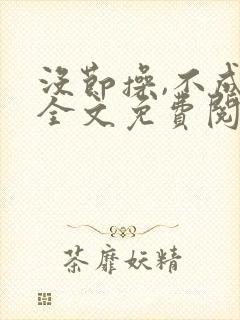 没节操,不成
全文免费阅
荼靡妖精